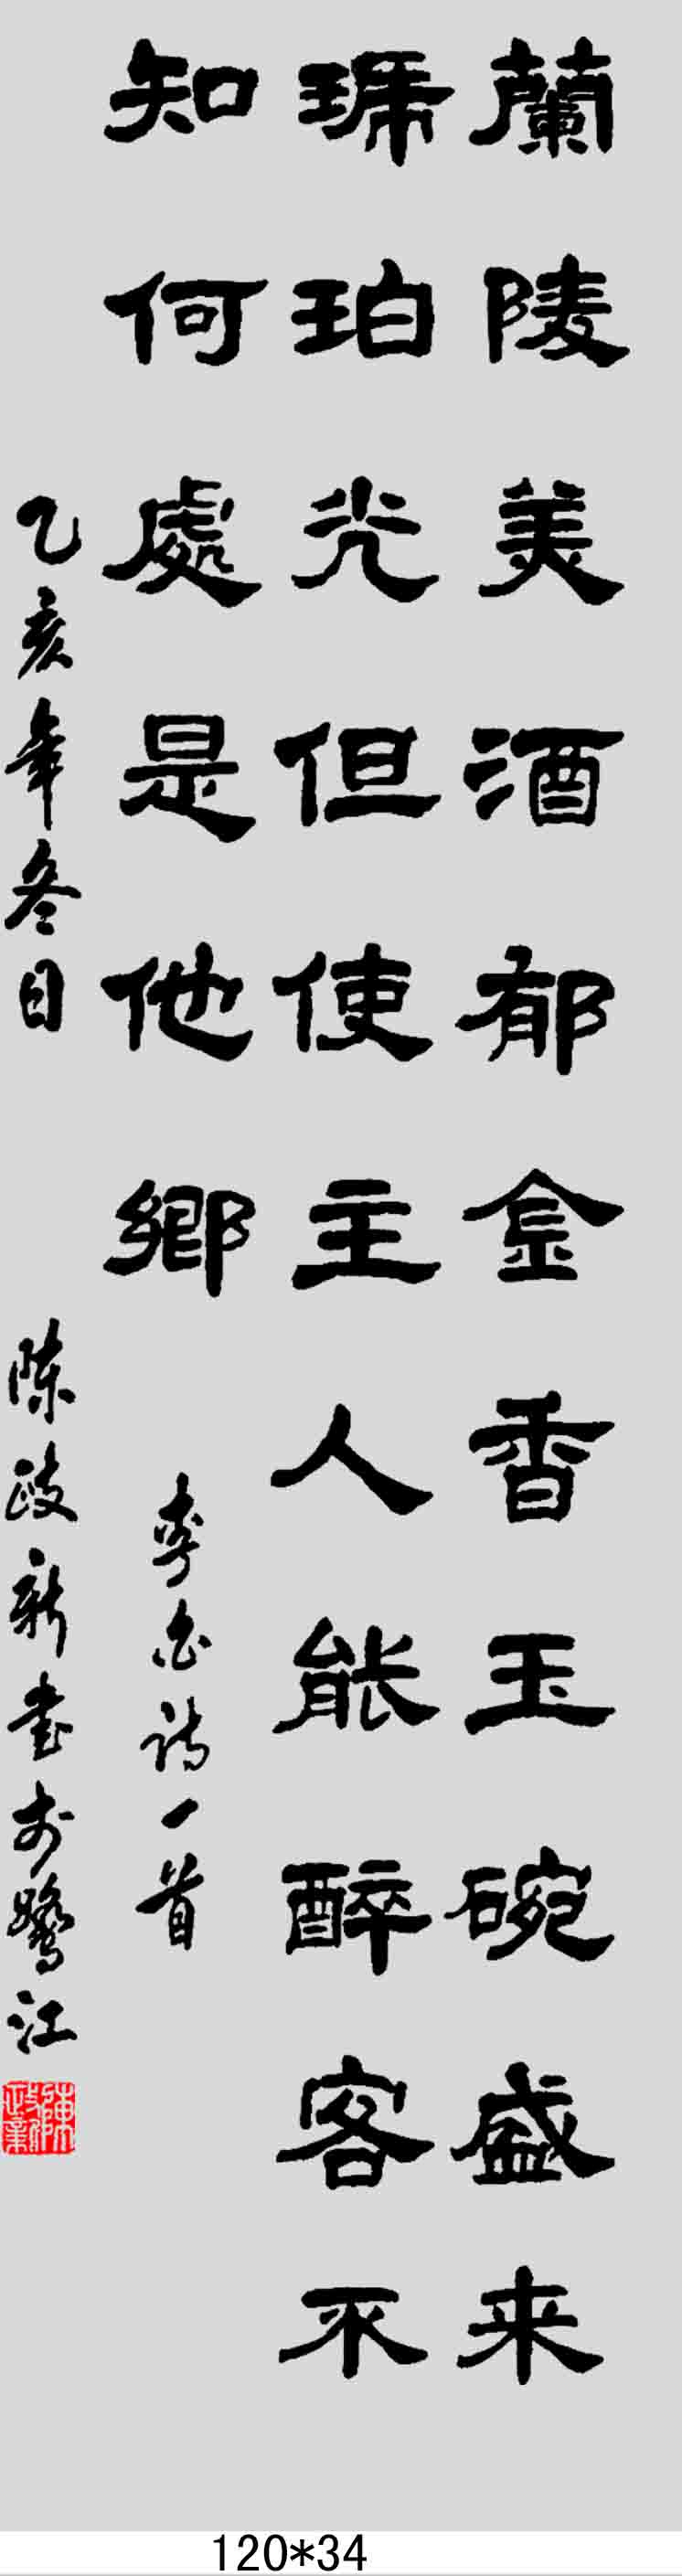 蘭陵美酒郁金香玉碗盛来
琥珀光但使主人能醉客不
知何處是他鄉
李白诗一首
乙亥年冬日
陈政新书于鹭江
陳政新
120*34